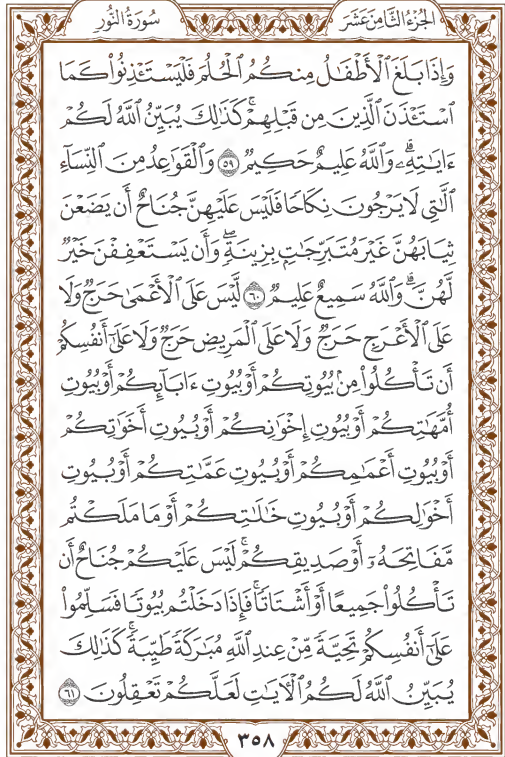 الجزء الثامن عشر
سورة النور
وَإِذَا بَلَغَ ٱلۡأَطۡفَٰلُ مِنكُمُ ٱلۡحُلُمَ فَلۡيَسۡتَـٔۡذِنُواْ كَمَا
ٱسۡتَـٔۡذَنَ ٱلَّذِينَ مِن قَبۡلِهِمۡۚ كَذَٰلِكَ يُبَيِّنُ ٱللَّهُ لَكُمۡ
ءَايَٰتِهِۦۗ وَٱللَّهُ عَلِيمٌ حَكِيمٞ ٥٩ وَٱلۡقَوَٰعِدُ مِنَ ٱلنِّسَآءِ
ٱلَّٰتِي لَا يَرۡجُونَ نِكَاحٗا فَلَيۡسَ عَلَيۡهِنَّ جُنَاحٌ أَن يَضَعۡنَ
ثِيَابَهُنَّ غَيۡرَ مُتَبَرِّجَٰتِۭ بِزِينَةٖۖ وَأَن يَسۡتَعۡفِفۡنَ خَيۡرٞ
لَّهُنَّۗ وَٱللَّهُ سَمِيعٌ عَلِيمٞ ٦٠ لَّيۡسَ عَلَى ٱلۡأَعۡمَىٰ حَرَجٞ وَلَا
عَلَى ٱلۡأَعۡرَجِ حَرَجٞ وَلَا عَلَى ٱلۡمَرِيضِ حَرَجٞ وَلَا عَلَىٰٓ أَنفُسِكُمۡ
أَن تَأۡكُلُواْ مِنۢ بُيُوتِكُمۡ أَوۡ بُيُوتِ ءَابَآئِكُمۡ أَوۡ بُيُوتِ
أُمَّهَٰتِكُمۡ أَوۡ بُيُوتِ إِخۡوَٰنِكُمۡ أَوۡ بُيُوتِ أَخَوَٰتِكُمۡ
أَوۡ بُيُوتِ أَعۡمَٰمِكُمۡ أَوۡ بُيُوتِ عَمَّٰتِكُمۡ أَوۡ بُيُوتِ
أَخۡوَٰلِكُمۡ أَوۡ بُيُوتِ خَٰلَٰتِكُمۡ أَوۡ مَا مَلَكۡتُم
مَّفَاتِحَهُۥٓ أَوۡ صَدِيقِكُمۡۚ لَيۡسَ عَلَيۡكُمۡ جُنَاحٌ أَن
تَأۡكُلُواْ جَمِيعًا أَوۡ أَشۡتَاتٗاۚ فَإِذَا دَخَلۡتُم بُيُوتٗا فَسَلِّمُواْ
عَلَىٰٓ أَنفُسِكُمۡ تَحِيَّةٗ مِّنۡ عِندِ ٱللَّهِ مُبَٰرَكَةٗ طَيِّبَةٗۚ كَذَٰلِكَ
يُبَيِّنُ ٱللَّهُ لَكُمُ ٱلۡأٓيَٰتِ لَعَلَّكُمۡ تَعۡقِلُونَ ٦١
٣٥٨